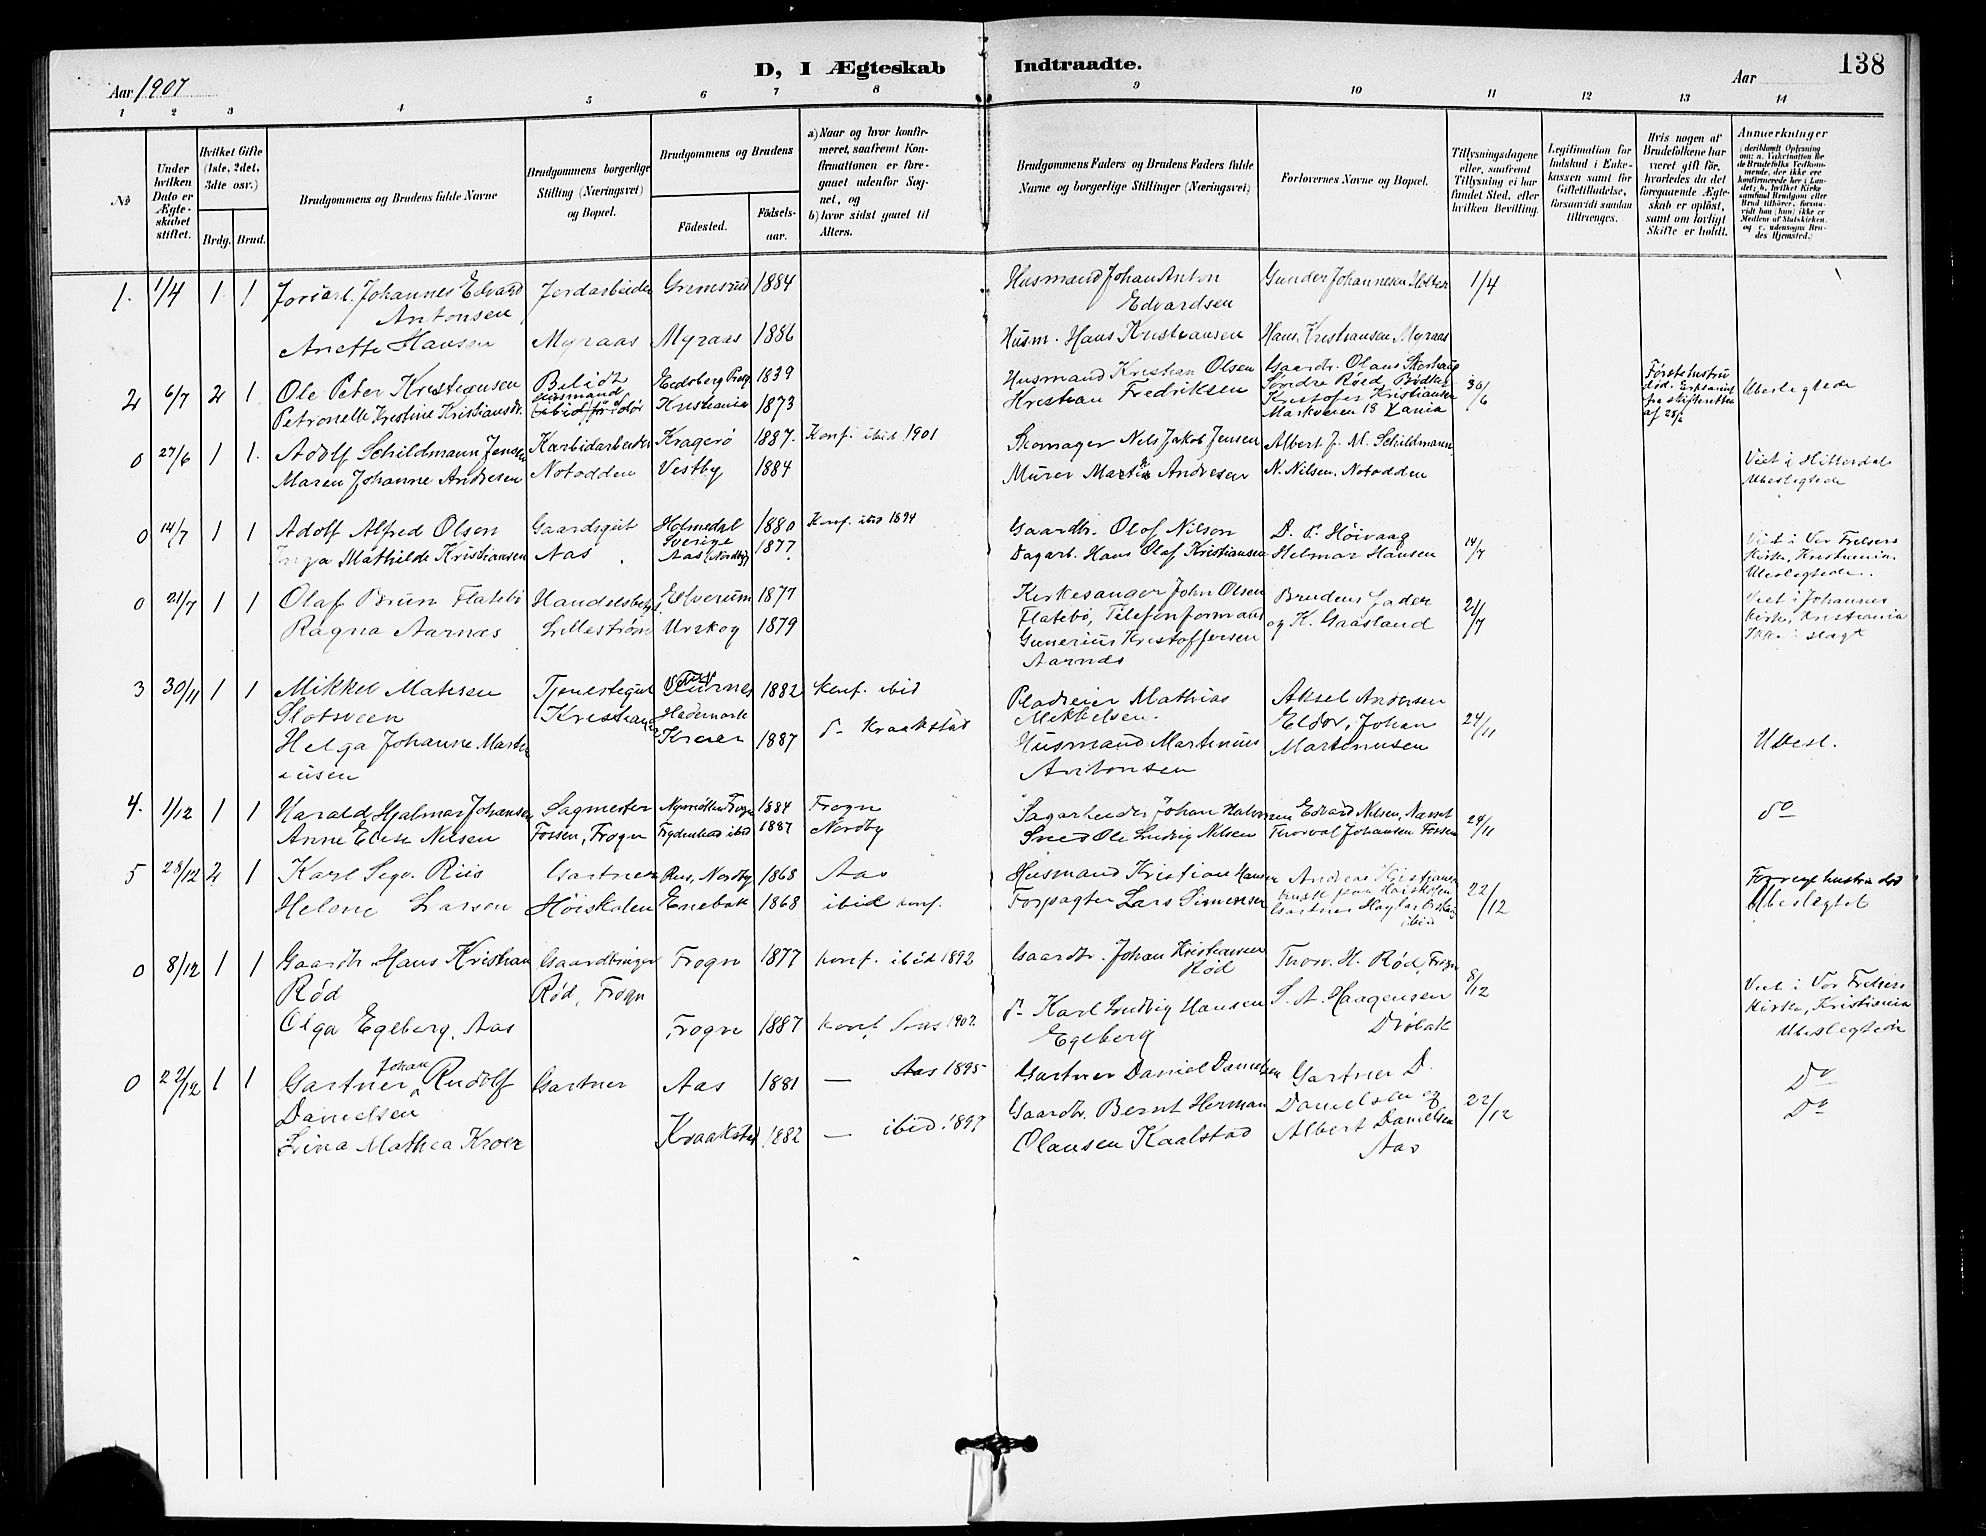 D, I Ægteskab Indtraadte.
138
Aar 1907
Aar
1 2 3 4 5 6 7 8 9 10 11 12 13 14
No
Under hvilken Dato er Ægteskabet stiftet.
Hvilket Gifte (1ste, 2det, 3dte osv.)
Brdg. Brud.
Brudgommens og Brudens fulde Navne
Brudgommens borgerlige Stilling (Næringsvei) og Bopæl.
Brudgommens og Brudens
Fødested.
Fødselsaar.
a) Naar og hvor konfirmeret, saafremt Konfirmationen er foregaaet udenfor Sognet, og
b) hvor sidst gaaet til Alters.
Brudgommens Faders og Brudens Faders fulde Navne og borgerlige Stillinger (Næringsvei)
Forlovernes Navne og Bopæl.
Tillysningsdagene eller, saafremt Tillysning ei har fundet Sted, efter hvilken Bevilling.
Legitimation for Indskud i Enkekassen samt for Giftetilladelse, forsaavidt saadan tiltrænges.
Hvis nogen af Brudefolkene har været gift før, hvorledes da det foregaaende Ægteskab er opløst, samt om lovligt Skifte er holdt.
Anmærkninger (deriblandt Oplysning om: a. Vakcination for de Brudefolks Vedkommende, der ikke ere konfirmerede her i Landet; b. hvilket Kirkesamfund Brudgom eller Brud tilhører, forsaavidt han (hun) ikke er Medlem af Statskirken, og c. udensogns Brudes Hjemsted.)
1. 1/4 1. 1 Jordarb. Johannes Edvard Jordarbeider Grimsrud 1884 Husmand Johan Anton Gunder Johannesen Holter 1/4
Antonsen Edvardsen
Anette Hansen Myraas Myraas 1886 Husm. Hans Kristiansen Hans Kristiansen Myraas
2 6/7 2 1. Ole Peter Kristiansen Husmand Eidsberg Præg. 1839 Husmand Kristian Olsen Gaardbr. Olaus Skorhaug 30/6 Første hustru død. Erklæring fra skifteretten af 28/6 Ubeslegtede
Petronelle Kristine Kristiansdr. Kristiania 1873 Kristian Fredriksen Søndre Røed Bødker Kristofer Kristiansen
Markveien 18 Kania
0 27/6 1 1. Adolf Schildmann Jensen Karbidarbeider Kragerø 1887. Konf. ibid 1901 Skomager Nels Jakob Jensen Albert J. M. Schildmann
Maren Johanne Andresen Notodden Vestby 1884 Murer Martin Andresen N. Nilsen, Notodden Viet i Hitterdal Ubeslegtede
0 14/7 1 1 Adolf Alfred Olsen Gaardsgut Holmedal Sverige 1880 Konf. ibid 1894 Gaardbr. Olof Nilson D. P. Høivaag 14/7 Viet i Vor Frelsers Kirke, Kristiania.
Inga Mathilde Kristiansen Aas. Aas (Nordby) 1877 Dagarb. Hans Olaf Kristiansen Helmar Hansen Ubeslegtede.
0 21/7 1 1 Olaf Brun Flatebø Handelsbetj. Elverum 1877 Kirkesanger John Olsen Brudens fader 21/7 Viet i Johannes
Ragna Aarnæs Lillestrøm Urskog 1879 Flatebø, Telefonformand og K. Gaasland Kirke, Kristiania
Gunerius Kristoffersen Ikke i slægt
Aarnæs
3 30/11 1 1 Mikkel Matisen Tjenestegut 1882 Konf. ibid Pladseier Mathias Aksel Andersen
Slotsveen Kristiania Hedemark Mikkelsen. Eldor, Johan 24/11
Helga Johanne Martiniusen Kroer 1887 do Kraakstad Husmand Martinius Martinusen Ubesl.
Antonsen
4. 1/12 1 1 Harald Hjalmar Johansen Sagmester Frogn 1884 Frogn Sagarbeider Johan Halvorsen Edvard Nilsen, Næsset 24/11 do
Anne Elise Nilsen Fossen, Frogn Frydenlund ibid 1887 Nordby Smed Ole Ludvig Nilsen Thorval Johansen Fossen
5 28/12 2 1 Karl Segv. Riis Gartner Riis, Nordby 1868 Aas Husmand Kristian Hansen Andreas Kristiansen 22/12 Forrige hustru død
Helene Larsen Høiskolen Enebak 1868 ibid konf. Forpagter Lars Simensen Ubeslegtet
ibid
0 8/12 1 1 Gaardbr. Hans Kristian Gaardbruger Frogn 1877 Konf. ibid 1892 Gaardbr. Johan Kristiansen Thorv. H. Rød, Frogn 8/12 Viet i Vor Frelsers
Rød Rød, Frogn Rød S. A. Haagensen Kirke, Kristiania
Olga Egeberg, Aas Frogn 1887 Konf. 1902 do Karl Ludvig Hansen Drøbak Ubeslegtede
Egeberg
0 22/12 1 1 Gartner Johan Rudolf Gartner Aas 1881 — Aas 1895 Gartner Daniel Danielsen Gartner D. 22/12 Do
Danielsen Gaardbr. Bernt Herman Danielsen og Do
Lina Mathea Kroer Kraakstad 1882 — ibid. 1897 Olausen Kaalstad Albert Danielsen
Aas